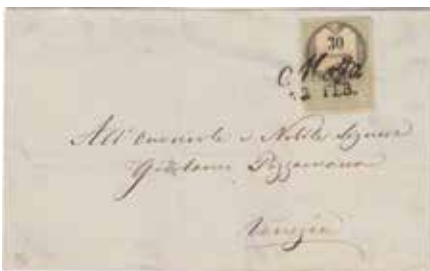 30
C. Motta
2 FEB.
All' Onorevole e Nobile Signore
Girolamo Pizzamano
Venezia